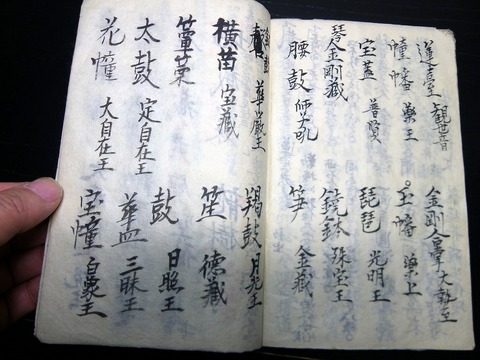 蓮臺 觀世音 金剛合掌 大勢至
幢幡 藥王 玉幡 藥上
宝蓋 普賢 琵琶 光明王
琴 金剛藏 鏡鉢 珠宝王
腰鼓 師子吼 金藏
鼓 華嚴王 羯鼓 月光王
横笛 宝藏 笙 德藏
篳篥 鼓 日照王
太鼓 定自在王 三昧王
花幢 大自在王 宝幢 白象王